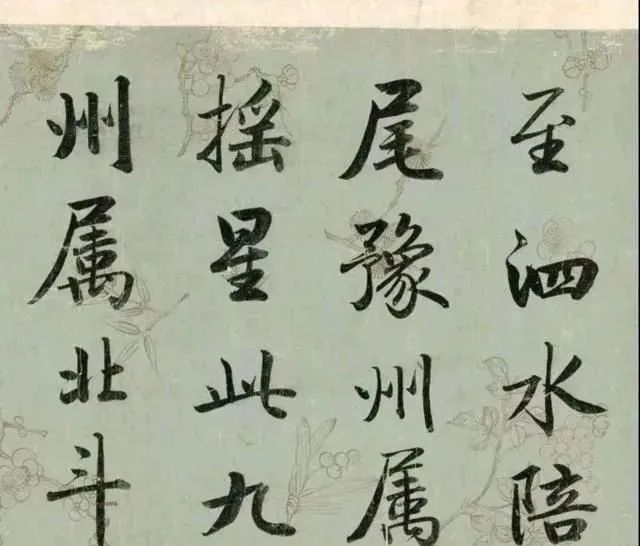 至泗水陪
尾豫州属
摇星此九
州属北斗